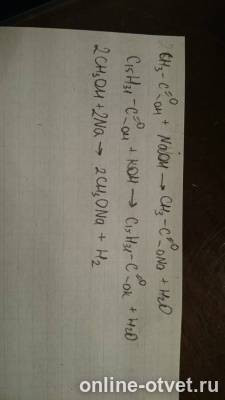 CH₃-C=O-OH + NaOH → CH₃-C=O-ONa + H₂O
C₁₅H₃₁-C=O-OH + KOH → C₁₅H₃₁-C=O-OK + H₂O
2CH₃OH + 2Na → 2CH₃ONa + H₂
online-otvet.ru